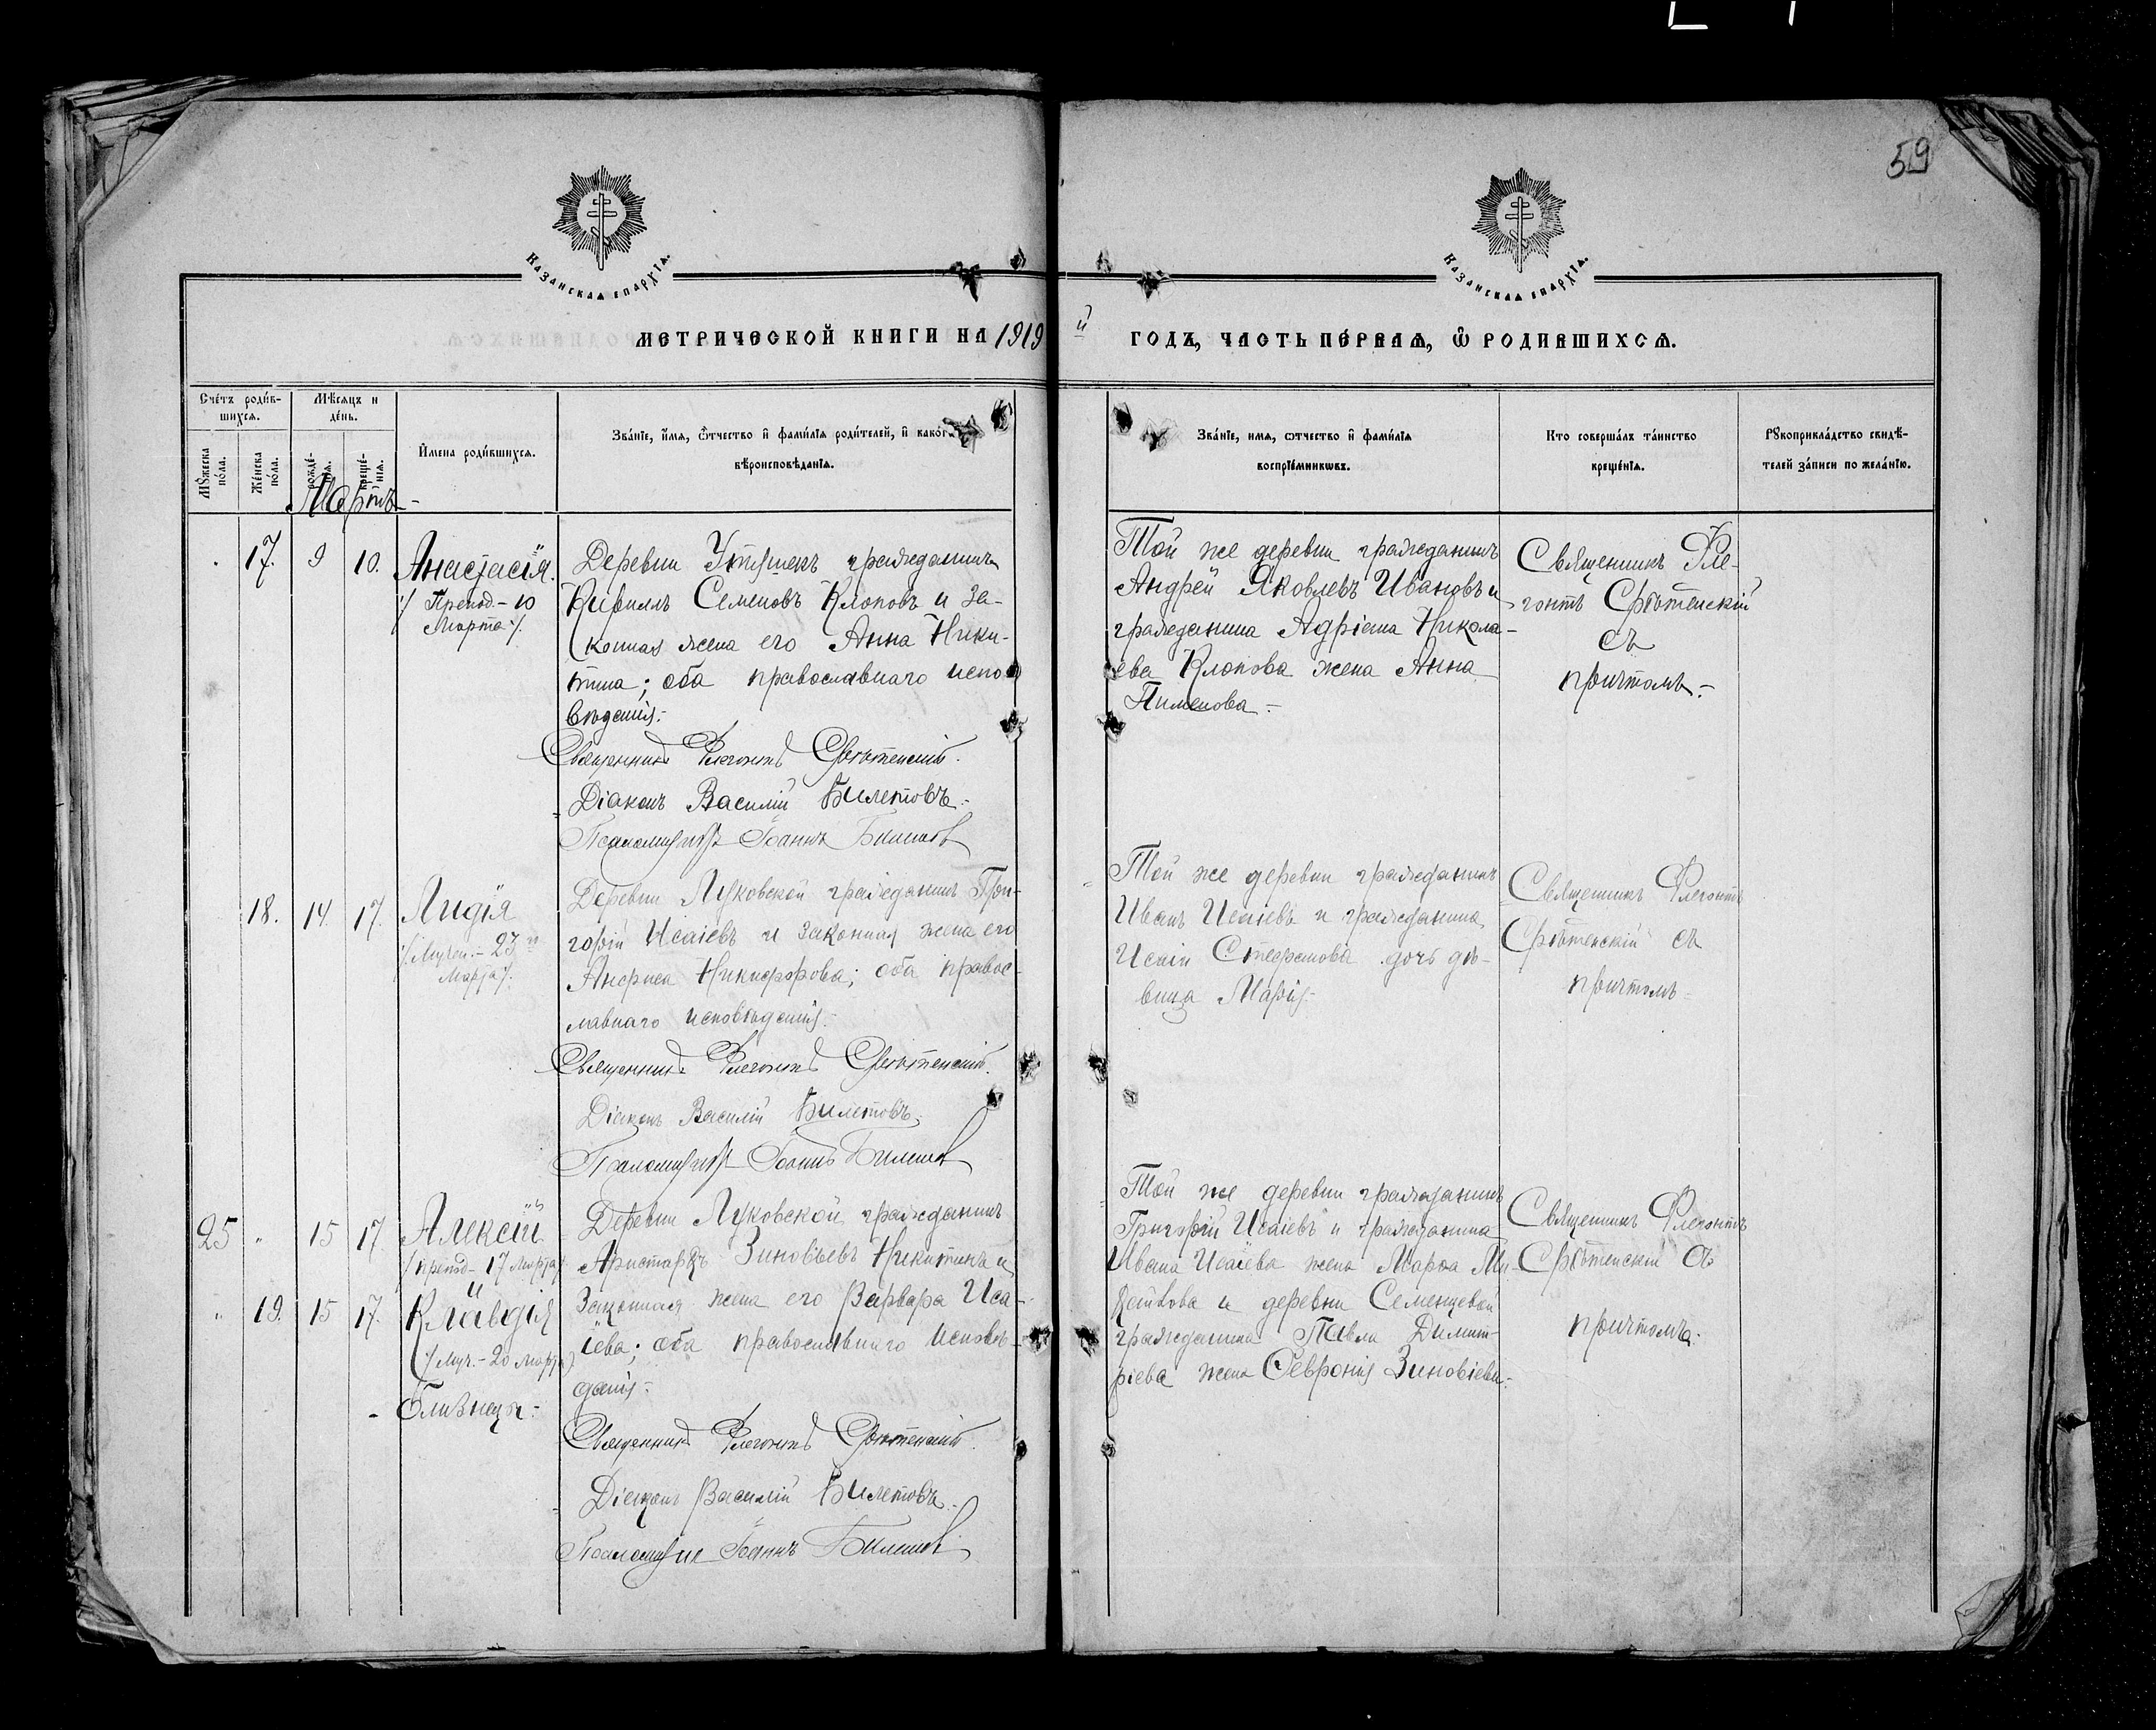 59
Казанская епархїя.
Казанская епархїя.
Метрической книги на 1919 й годъ, часть первая, ѡ родившихся.
Счетъ родив-
шихся.
Мѣсяцъ и
день.
Мужеска
пола.
Женска
пола.
рожде-
нїя.
креще-
нїя.
Имена родившихся.
Званїе, имя, ѿчество и фамилїя родителей, и какого
вѣроисповѣданїя.
Званїе, имя, ѿчество и фамилїя
воспрїемниковъ.
Кто совершалъ таинство
крещенїя.
Рукоприкладство свидѣ-
телей записи по желанїю.
Мартъ
17. 9 10. Анастасія.
/ Препод. - 10
Марта /.
Деревни Утяшекъ гражданинъ
Кириллъ Семеновъ Клоповъ и за-
конная жена его Анна Ники-
тина; оба православнаго испо-
вѣданія.
Священникъ Флегонтъ Срѣтенскій.
Діаконъ Василій Билетовъ.
Псаломщикъ Іоаннъ
Той же деревни гражданинъ
Андрей Яковлевъ Ивановъ и
гражданина Адріана Никола-
ева Клопова жена Анна
Пименова.
Священникъ Фле-
гонтъ Срѣтенскій
съ
причтомъ.
18. 14. 17. Лидія
/ Мучен. - 23
Марта /.
Деревни Луковской гражданинъ Гри-
горій Исаіевъ и законная жена его
Анфиса Никифорова; оба правос-
лавнаго исповѣданія.
Священникъ Флегонтъ Срѣтенскій.
Діаконъ Василій Билетовъ.
Псаломщикъ Іоаннъ
Той же деревни гражданинъ
Иванъ Исаіевъ и гражданина
Стефанова дочь дѣ-
вица Марія.
Священникъ Флегонтъ
Срѣтенскій съ
причтомъ
25 15 17 Алексій
/ препод - 17 Марта /
и
19. 15 17. Клавдія
/ Муч. - 20 Марта /
близнецы.
Деревни Луковской гражданинъ
Аристархъ Зиновьевъ Никитинъ и
законная жена его Варвара Иса-
іева; оба православнаго исповѣ-
данія.
Священникъ Флегонтъ Срѣтенскій.
Діаконъ Василій Билетовъ.
Псаломщикъ Іоаннъ
Той же деревни гражданинъ
Григорій Исаіевъ и гражданина
Ивана Исаіева жена Марѳа
и деревни Семенцевой
гражданина Павла Димит-
ріева жена Февронія Зиновіева.
Священникъ Флегонтъ
Срѣтенскій съ
причтомъ.